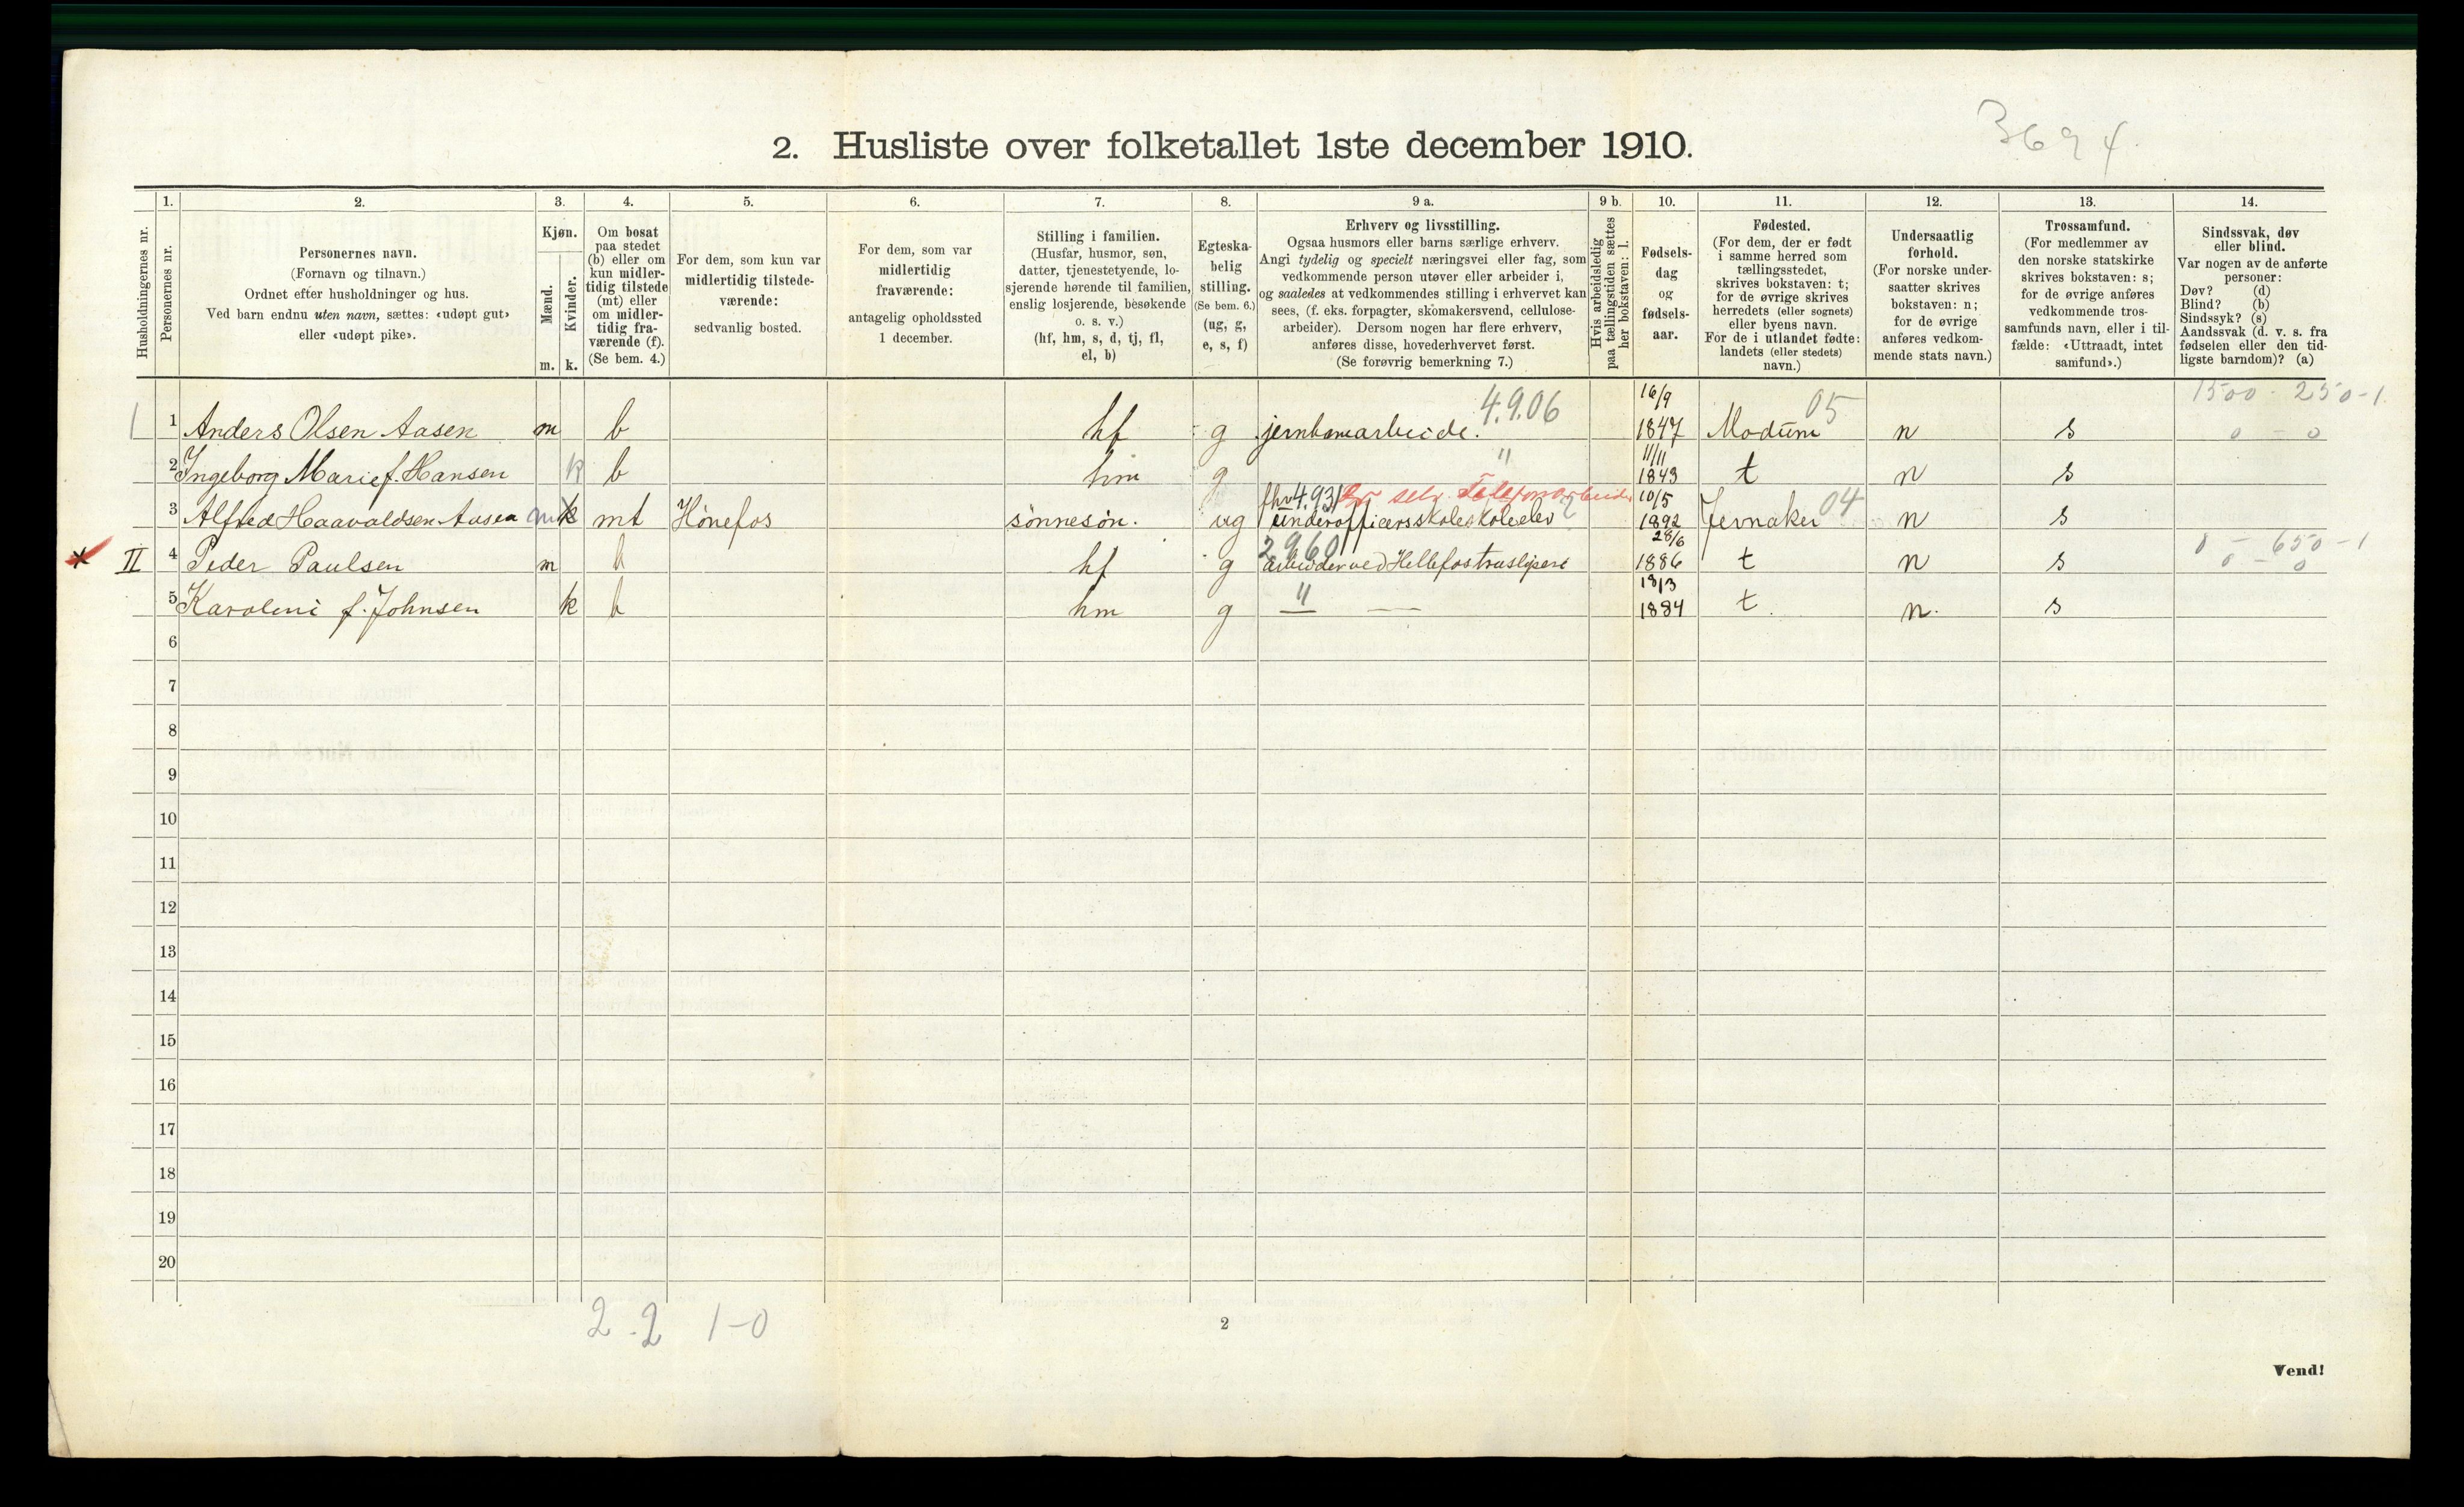 3694
2. Husliste over folketallet 1ste december 1910.
Husholdningernes nr.
1.
Personernes nr.
2.
Personernes navn.
(Fornavn og tilnavn.)
Ordnet efter husholdninger og hus.
Ved barn endnu uten navn, sættes: «udøpt gut»
eller «udøpt pike».
3.
Kjøn.
Mænd.
m.
Kvinder.
k.
4.
Om bosat
paa stedet
(b) eller om
kun midler-
tidig tilstede
(mt) eller
om midler-
tidig fra-
værende (f).
(Se bem. 4.)
5.
For dem, som kun var
midlertidig tilstede-
værende:
sedvanlig bosted.
6.
For dem, som var
midlertidig
fraværende:
antagelig opholdssted
1 december.
7.
Stilling i familien.
(Husfar, husmor, søn,
datter, tjenestetyende, lo-
sjerende hørende til familien,
enslig losjerende, besøkende
o. s. v.)
(hf, hm, s, d, tj, fl,
el, b)
8.
Egteska-
belig
stilling.
(Se bem. 6.)
(ug, g,
e, s, f)
9 a.
Erhverv og livsstilling.
Ogsaa husmors eller barns særlige erhverv.
Angi tydelig og specielt næringsvei eller fag, som
vedkommende person utøver eller arbeider i,
og saaledes at vedkommendes stilling i erhvervet kan
sees, (f. eks. forpagter, skomakersvend, cellulose-
arbeider). Dersom nogen har flere erhverv,
anføres disse, hovederhvervet først.
(Se forøvrig bemerkning 7.)
9 b.
Hvis arbeidsledig
paa tællingstiden sættes
her bokstaven: l.
10.
Fødsels-
dag
og
fødsels-
aar.
11.
Fødested.
(For dem, der er født
i samme herred som
tællingsstedet,
skrives bokstaven: t;
for de øvrige skrives
herredets (eller sognets)
eller byens navn.
For de i utlandet fødte:
landets (eller stedets)
navn.)
12.
Undersaatlig
forhold.
(For norske under-
saatter skrives
bokstaven: n;
for de øvrige
anføres vedkom-
mende stats navn.)
13.
Trossamfund.
(For medlemmer av
den norske statskirke
skrives bokstaven: s;
for de øvrige anføres
vedkommende tros-
samfunds navn, eller i til-
fælde: «Uttraadt, intet
samfund».)
14.
Sindssvak, døv
eller blind.
Var nogen av de anførte
personer:
Døv? (d)
Blind? (b)
Sindssyk? (s)
Aandssvak (d. v. s. fra
fødselen eller den tid-
ligste barndom)? (a)
4.9.06 16/9 05 1500 - 250-1
1 1 Anders Olsen Aasen m b hf g 1847 Modum n s 0 - 0
" 11/11
2 Ingeborg Marie f. Hansen k b hm g 1843 t n s
fhv 4.931 10/5 04
3 Alfred Haavaldsen Aasen m k mt Hønefos sønnesøn. ug underofficersskole skoleelev 1892 Jevnaker n s
2960 28/6 0 - 650-1
II 4 Peder Paulsen m b hf g arbeider ved Hellefos træsliperi 1886 t n s 0 - 0
" 18/3
5 Karoline f. Johnsen k b hm g — — 1884 t. n. s
6
7
8
9
10
11
12
13
14
15
16
17
18
19
20
2.2 1-0
2
Vend!